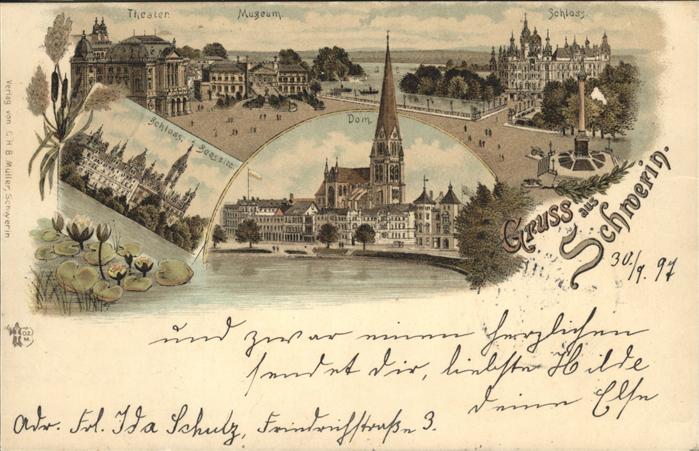 Theater.
Museum.
Schloss.
Schloss, Seeseite.
Dom.
Verlag von C. H. B. Müller, Schwerin
Gruss aus Schwerin.
30./9. 97
und zwar einen herzlichen
sendet dir, liebste Hilde
deine Else
Adr. Frl. Ida Schulz, Friedrichstraße 3.